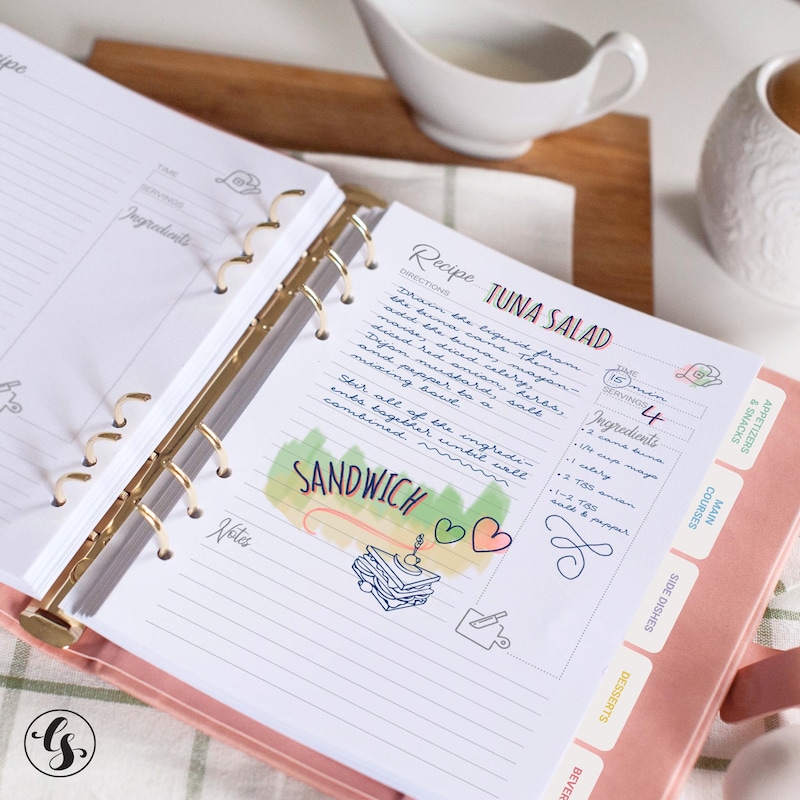 Recipe
TIME
SERVINGS
Ingredients
Recipe
TUNA SALAD
DIRECTIONS
Drain the liquid from
the tuna cans. Then,
add the tuna, mayon-
naise, diced celery,
diced red onion, herbs,
Dijon mustard, salt
and pepper to a
mixing bowl.
Stir all of the ingredi-
ents together until well
combined.
SANDWICH
Notes
TIME
15 min
SERVINGS
4
Ingredients
• 2 cans tuna
• 1/4 cup mayo
• 1 celery
• 2 TBS onion
• 1-2 TBS
salt & pepper
APPETIZERS
& SNACKS
MAIN
COURSES
SIDE DISHES
DESSERTS
BEVER
CS